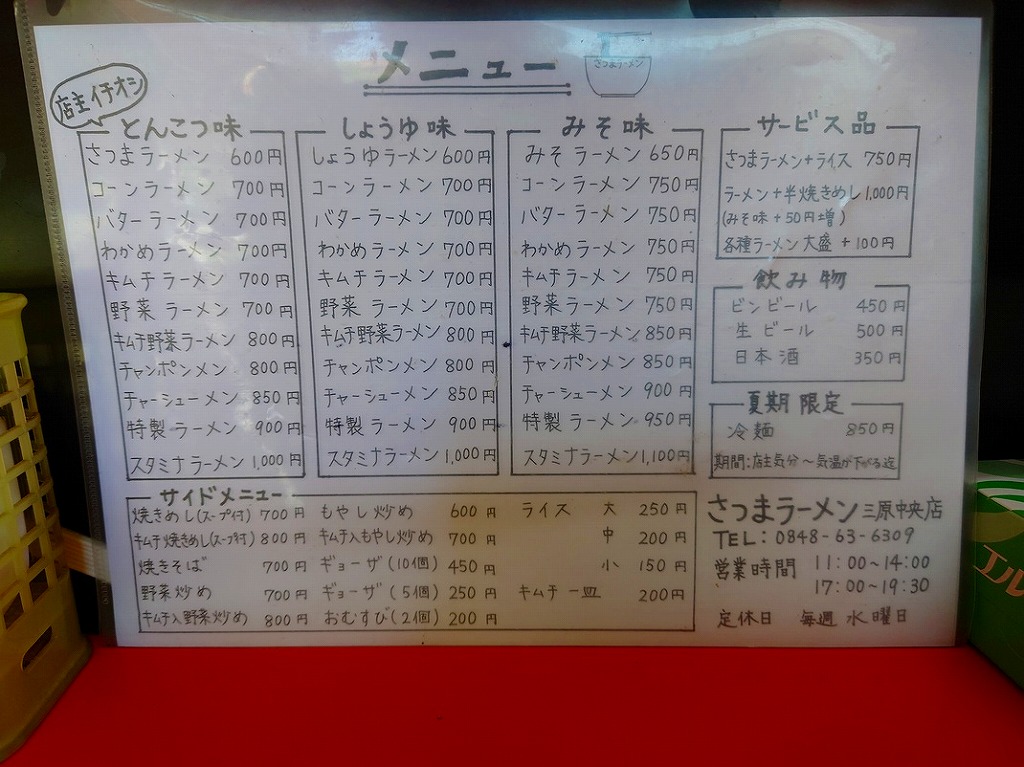 メニュー
さつまラーメン
店主イチオシ
とんこつ味
さつまラーメン 600円
コーンラーメン 700円
バターラーメン 700円
わかめラーメン 700円
キムチラーメン 700円
野菜ラーメン 700円
キムチ野菜ラーメン 800円
チャンポンメン 800円
チャーシューメン 850円
特製ラーメン 900円
スタミナラーメン 1,000円
しょうゆ味
しょうゆラーメン 600円
コーンラーメン 700円
バターラーメン 700円
わかめラーメン 700円
キムチラーメン 700円
野菜ラーメン 700円
キムチ野菜ラーメン 800円
チャンポンメン 800円
チャーシューメン 850円
特製ラーメン 900円
スタミナラーメン 1,000円
みそ味
みそラーメン 650円
コーンラーメン 750円
バターラーメン 750円
わかめラーメン 750円
キムチラーメン 750円
野菜ラーメン 750円
キムチ野菜ラーメン 850円
チャンポンメン 850円
チャーシューメン 900円
特製ラーメン 950円
スタミナラーメン 1,100円
サービス品
さつまラーメン+ライス 750円
ラーメン+半焼きめし 1,000円
(みそ味+50円増)
各種ラーメン大盛 +100円
飲み物
ビンビール 450円
生ビール 500円
日本酒 350円
夏期限定
冷麺 850円
期間:店主気分~気温が下がる迄
サイドメニュー
焼きめし(スープ付) 700円
キムチ焼きめし(スープ付) 800円
焼きそば 700円
野菜炒め 700円
キムチ入野菜炒め 800円
もやし炒め 600円
キムチ入もやし炒め 700円
ギョーザ(10個) 450円
ギョーザ(5個) 250円
おむすび(2個) 200円
ライス 大 250円
中 200円
小 150円
キムチ一皿 200円
さつまラーメン 三原中央店
TEL:0848-63-6309
営業時間 11:00~14:00
17:00~19:30
定休日 毎週水曜日
エル